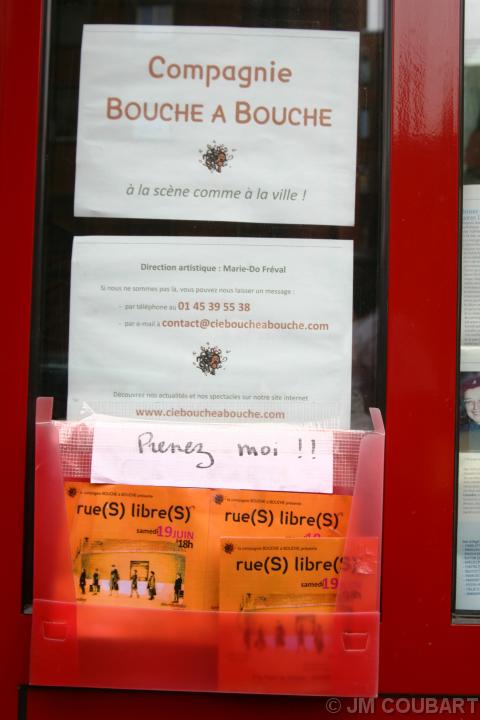 Compagnie
BOUCHE A BOUCHE
à la scène comme à la ville !
Direction artistique : Marie-Do Fréval
Si nous ne sommes pas là, vous pouvez nous laisser un message :
- par téléphone au 01 45 39 55 38
- par e-mail à contact@cieboucheabouche.com
Découvrez nos actualités et nos spectacles sur notre site internet
www.cieboucheabouche.com
Prenez moi !!
la compagnie BOUCHE A BOUCHE présente
rue(S) libre(S)
samedi 19 JUIN
18h
la compagnie BOUCHE A BOUCHE présente
rue(S) libre(S)
la compagnie BOUCHE A BOUCHE présente
rue(S) libre(S)
samedi 19
© JM COUBART